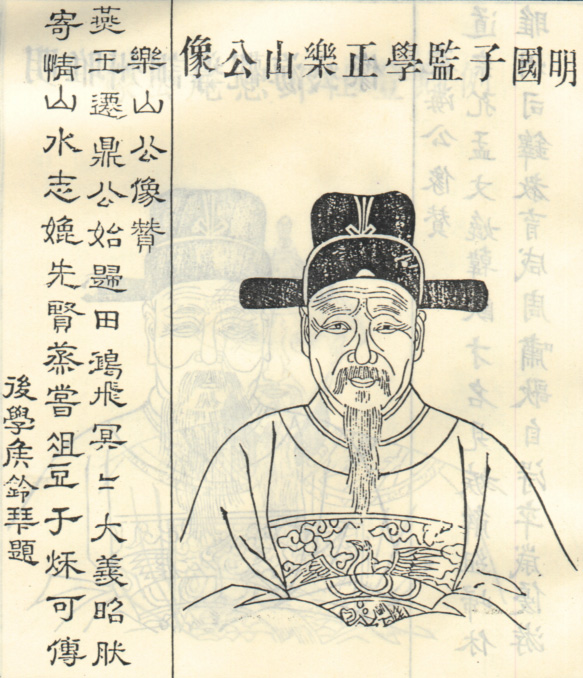 明國子監學正樂山公像
樂山公像贊
燕王遷鼎公始歸田鴻飛冥〻大義昭肰
寄情山水志媲先賢蒸嘗俎豆千秌可傳
後學矦鈴琴題